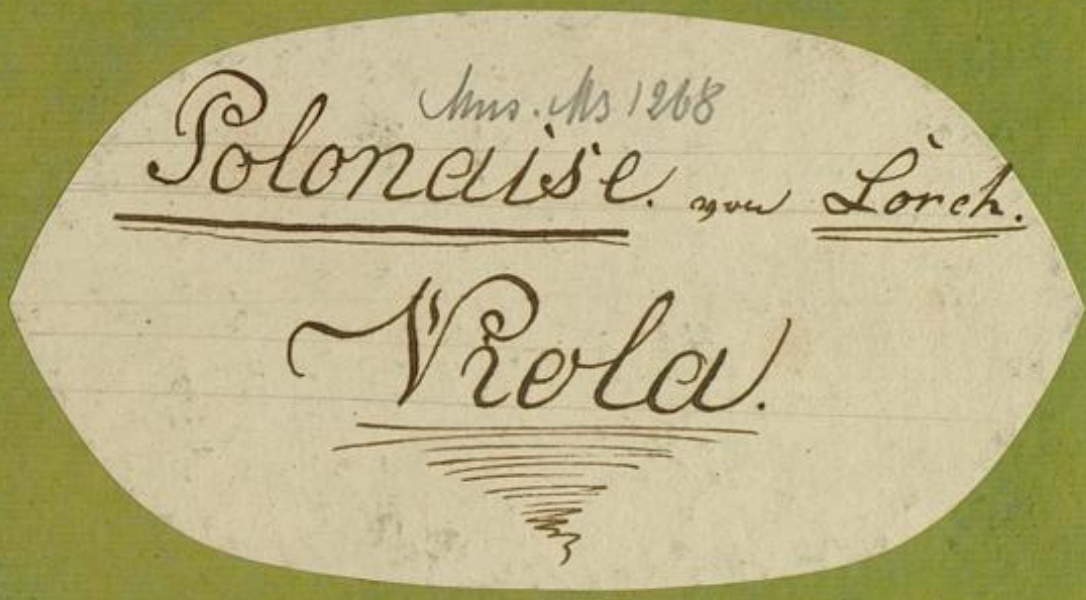 Mus. Ms 1268
Polonaise. von Lorch.
Viola.